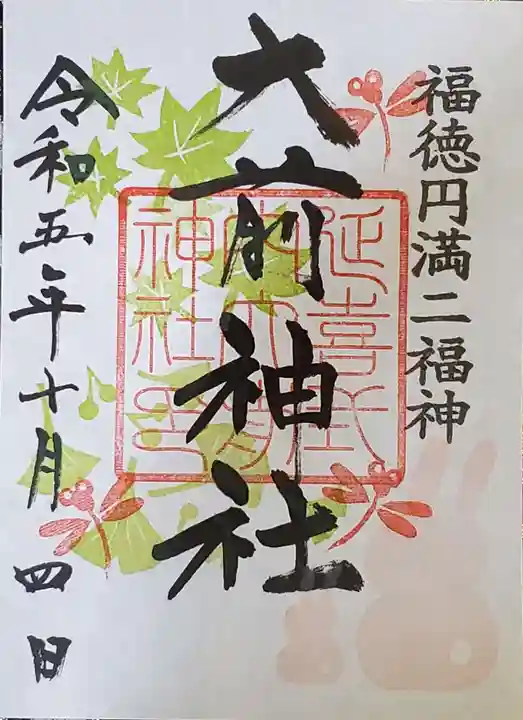 福徳円満二福神
大前神社
延喜式
内大前
神社印
令和五年十月四日